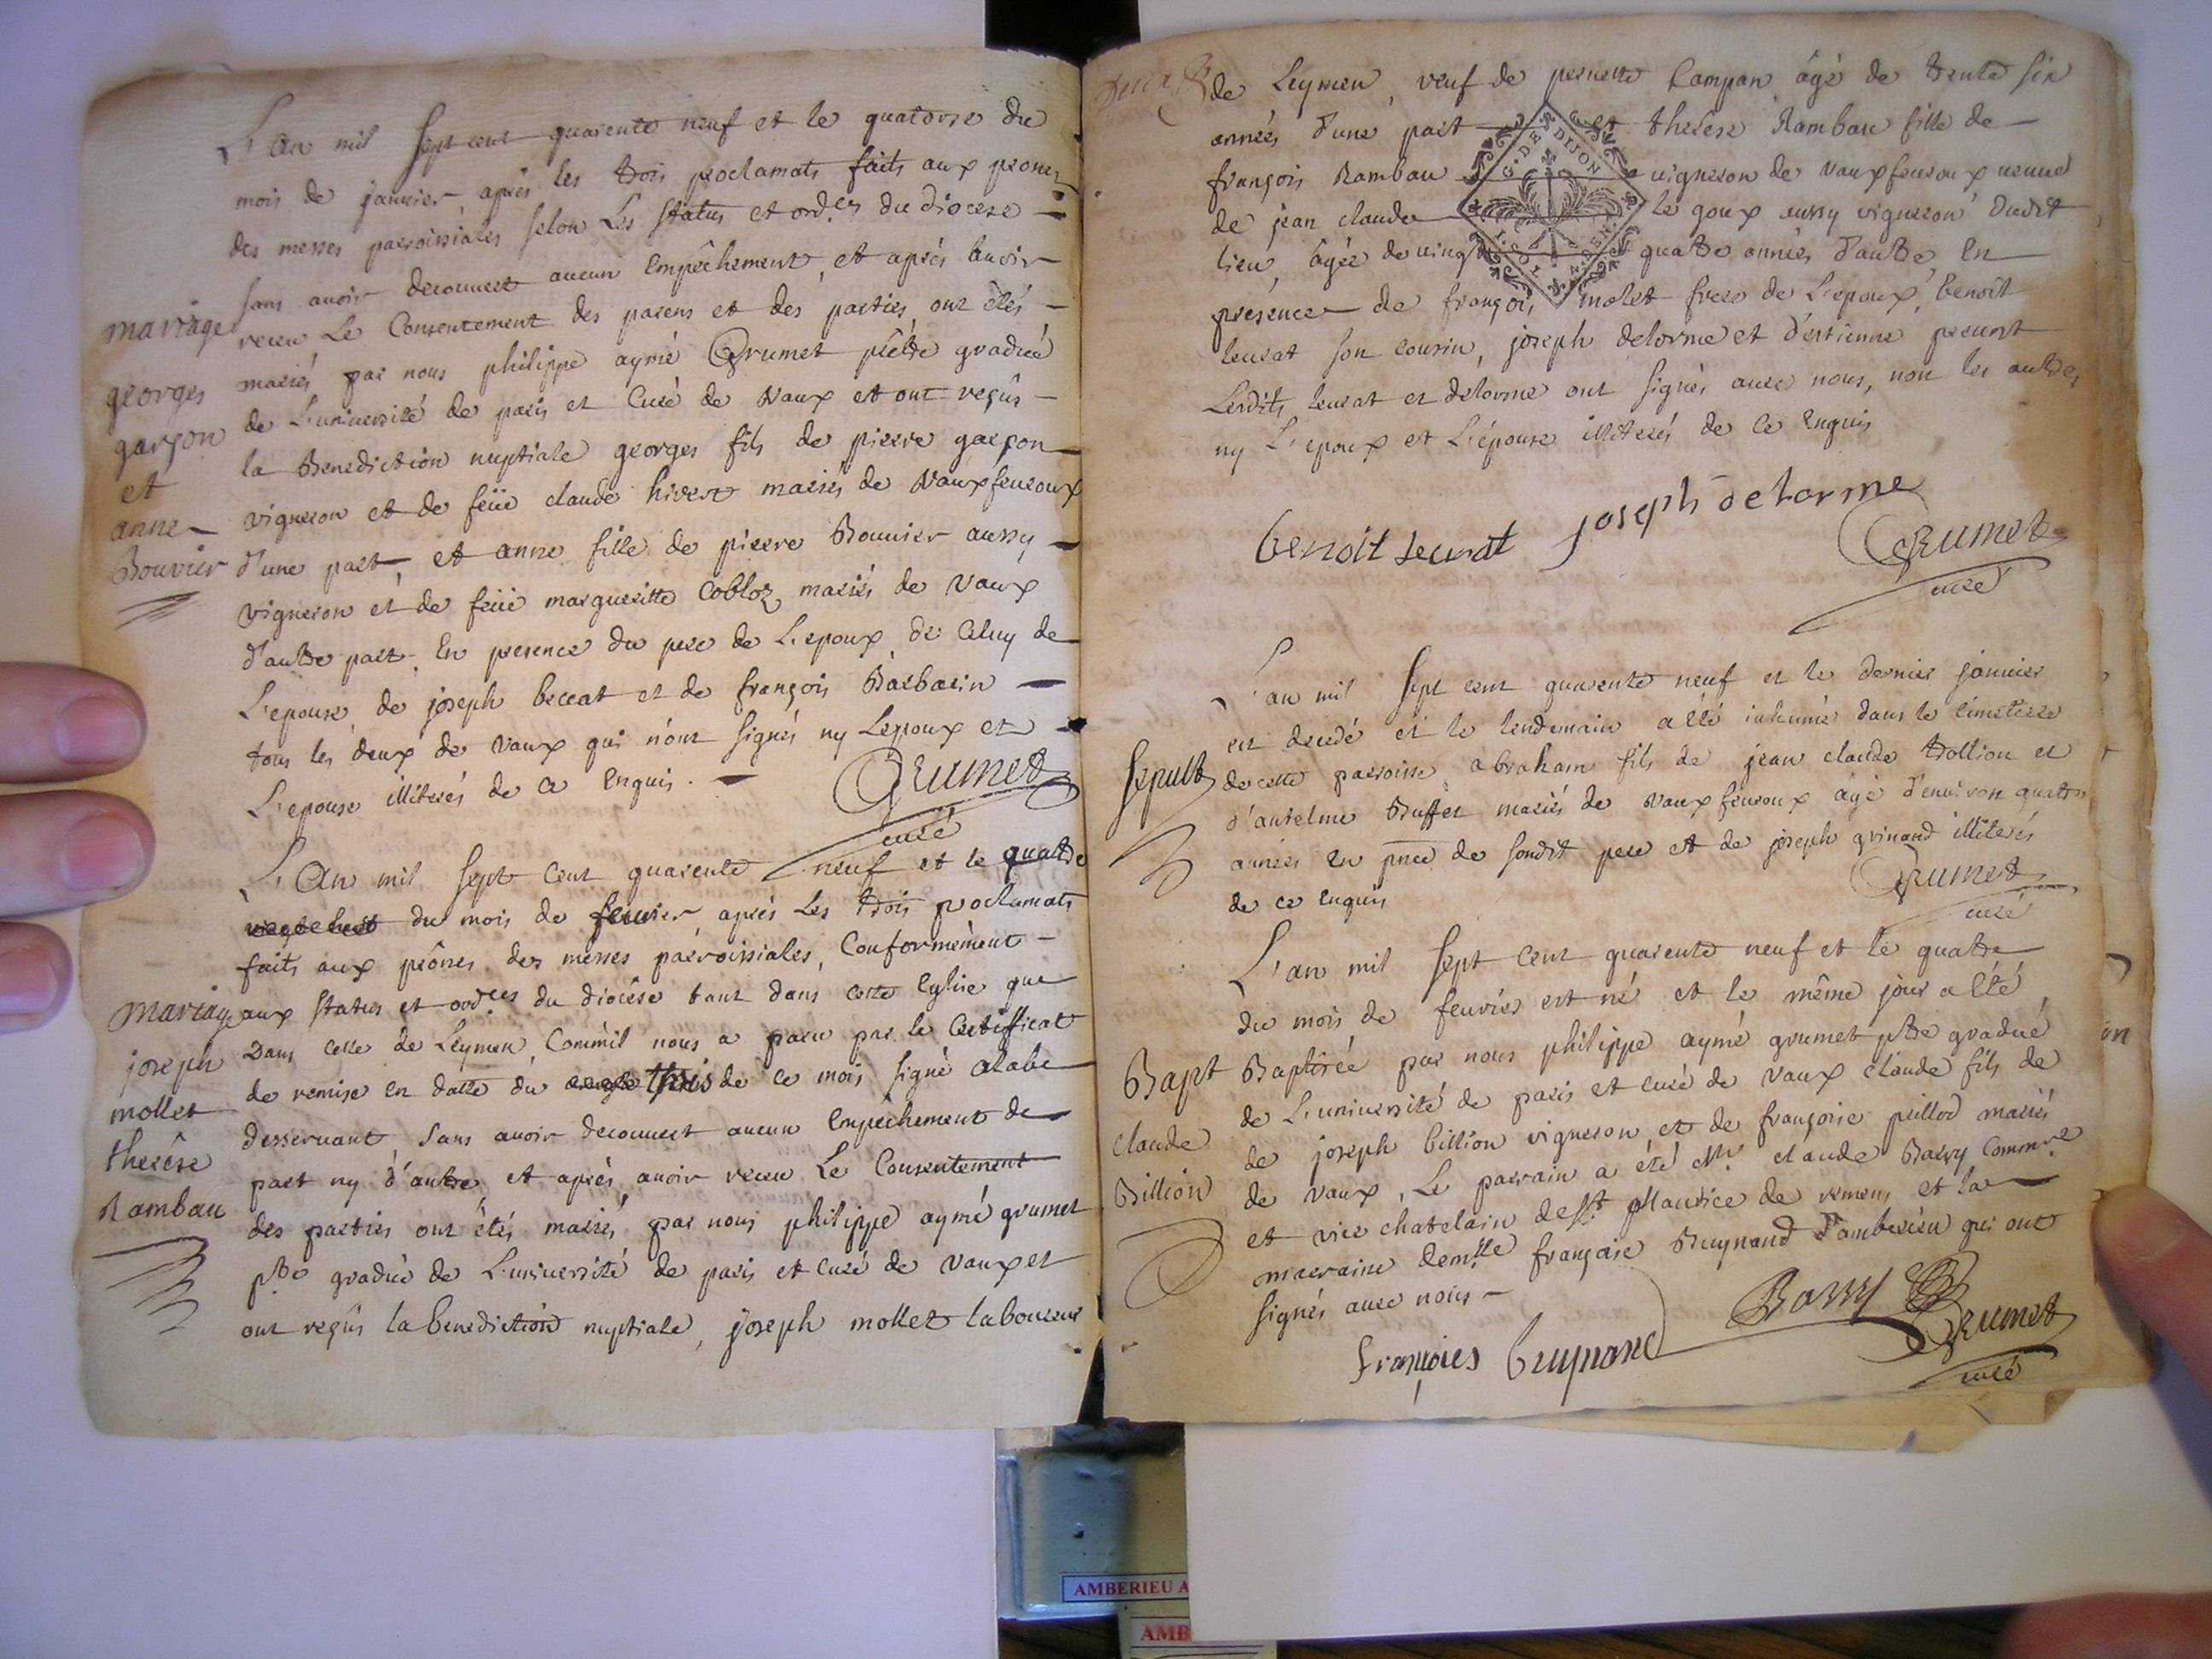 L'an mil sept cent quarente neuf et le quatorse du
mois de janvier, après les trois proclamats faits aux prones
des messes parroissiales selon Les status et ord.ces du diocese
sans avoir decouvert aucun Empêchement, et après avoir
receu Le Consentement des parens et des parties, ont êtés
mariés par nous philippe aymé Grumet prêtre gradué
de L'université de paris et Curé de Vaux et ont reçûs
la Benediction nuptiale georges fils de pierre garçon
vigneron et de feüe claude hivert mariés de Vauxfevroux
d'une part, et anne fille de pierre Bouvier aussy
vigneron et de feüe margueritte Cobloz mariés de Vaux
d'autre part. En presence du pere de L'epoux, de Celuy de
L'epouse, de joseph beccat et de françois Barbarin
tous les deux de Vaux qui n'ont signés ny Lepoux et
L'epouse illiterés de ce Enquis.
Grumet
curé
mariage
georges
garçon
et
anne
Bouvier
L'An mil sept cent quarente neuf et le quatre
du mois de fevrier après Les trois proclamats
faits aux prônes des messes parroissiales, Conformèment
aux status et ord.ces du diocêse tant dans cette Eglise que
Dans celle de Leymen, Comm'il nous a paru par le Certifficat
de remise en datte du trois de ce mois signé alabe
desservant sans avoir decouvert aucun Empêchement de
part ny d'autre et après avoir receu Le Consentement
des parties ont êtés mariés par nous philippe aymé grumet
ptre gradué de L'université de paris et curé de vaux et
ont reçûs la benediction nuptiale, joseph mollet laboureur
mariage
joseph
mollet
therêse
Rambau
de Leymen, veuf de pernette Campan âgé de trente six
années d'une part et therese Rambau fille de
françois Rambau vigneron de vauxfevroux veuve
de jean claude le goux aussy vigneron dudit
lieu, âgée de vingt quatre années d'autre, En
présence de françois molet frere de L'epoux, benoît
leurat son cousin, joseph delorme et d'estienne prevost
Lesdits leurat et delorme ont signés avec nous, non les autres
ny L'epoux et L'épouse illiterés de ce Enquis
G. DE DIJON
benoit leurat joseph delorme
Grumet
curé
L'an mil sept cent quarente neuf et le dernier janvier
est decedé et le lendemain a été inhumé dans le cimetiere
de cette parroisse abraham fils de jean claude trollion et
d'antelme Buffet mariés de vauxfevroux âgé d'environ quatre
années en pnce de sondit pere et de joseph grinand illiterés
de ce enquis
Grumet
curé
sepult
L'an mil sept cent quarente neuf et le quatre
du mois de fevrier est né et le même jour a été
Baptisée par nous philippe aymé grumet ptre gradué
de L'université de paris et curé de vaux claude fils de
de joseph billion vigneron et de françoise peillod mariés
de vaux, Le parrain a été Mr. claude Barry Comm.re
et vice chatelain de St. Maurice de remens et la
marraine dem.lle françoise Buynand d'amberieu qui ont
signés avec nous
Bapt
claude
Billion
françoies buynand Barry Grumet
curé
AMBERIEU A
AMB